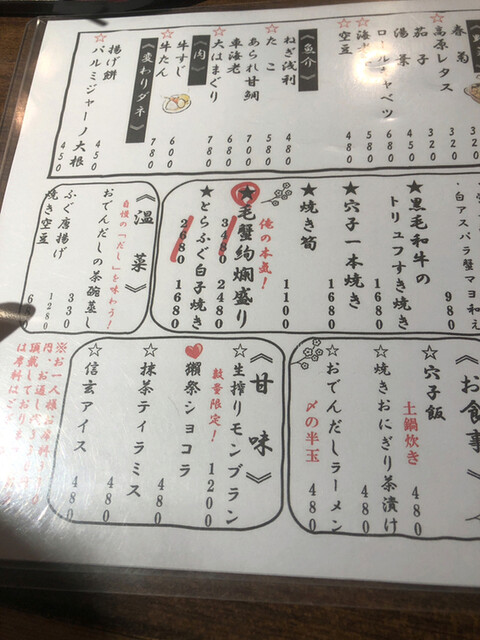 春菊 320
☆高原レタス 320
茄子 320
湯葉 450
ロールキャベツ 680
空豆 480
《魚介》
ねぎ浅利 480
☆たこ 580
あられ甘鯛 680
車海老 700
☆大はまぐり 680
《肉》
☆牛すじ 600
☆牛たん 780
《変わりダネ》
揚げ餅 450
☆パルミジャーノ大根 450
・白アスパラ蟹マヨ和え 980
★黒毛和牛の
トリュフすき焼き 1680
★穴子一本焼き 1680
★焼き筍 1100
俺の本気!
★毛蟹絢爛盛り 3480 2480
★とらふぐ白子焼き 2680 1680
《温菜》
自慢の「だし」を味わう!
おでんだしの茶碗蒸し 330
ふぐ唐揚げ 1280
焼き空豆
《お食事》
☆穴子飯
土鍋炊き 480
☆焼きおにぎり茶漬け 480
☆おでんだしラーメン 480
〆の半玉
《甘味》
☆生搾りモンブラン 1200
数量限定!
獺祭ショコラ 480
☆抹茶ティラミス 480
☆信玄アイス 480